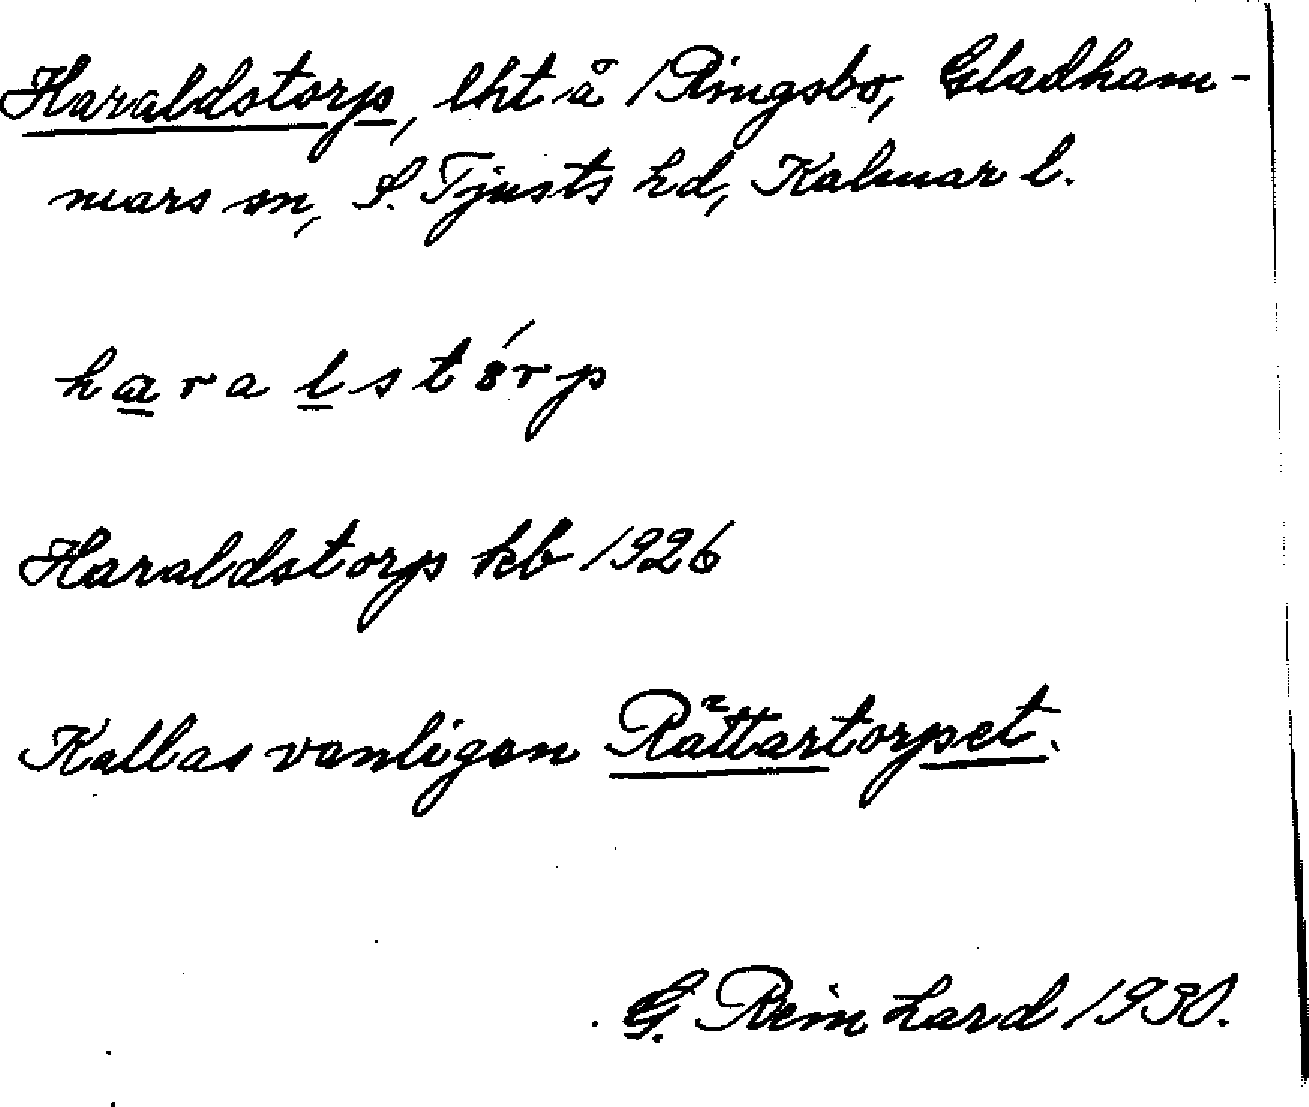 Haraldstorp, lht å Ringsbo, Gladham-
mars sn, S. Tjusts hd, Kalmar l.
haralstórp
Haraldstorp kb 1926
Kallas vanligen Rättartorpet.
G. Reinhard 1930.